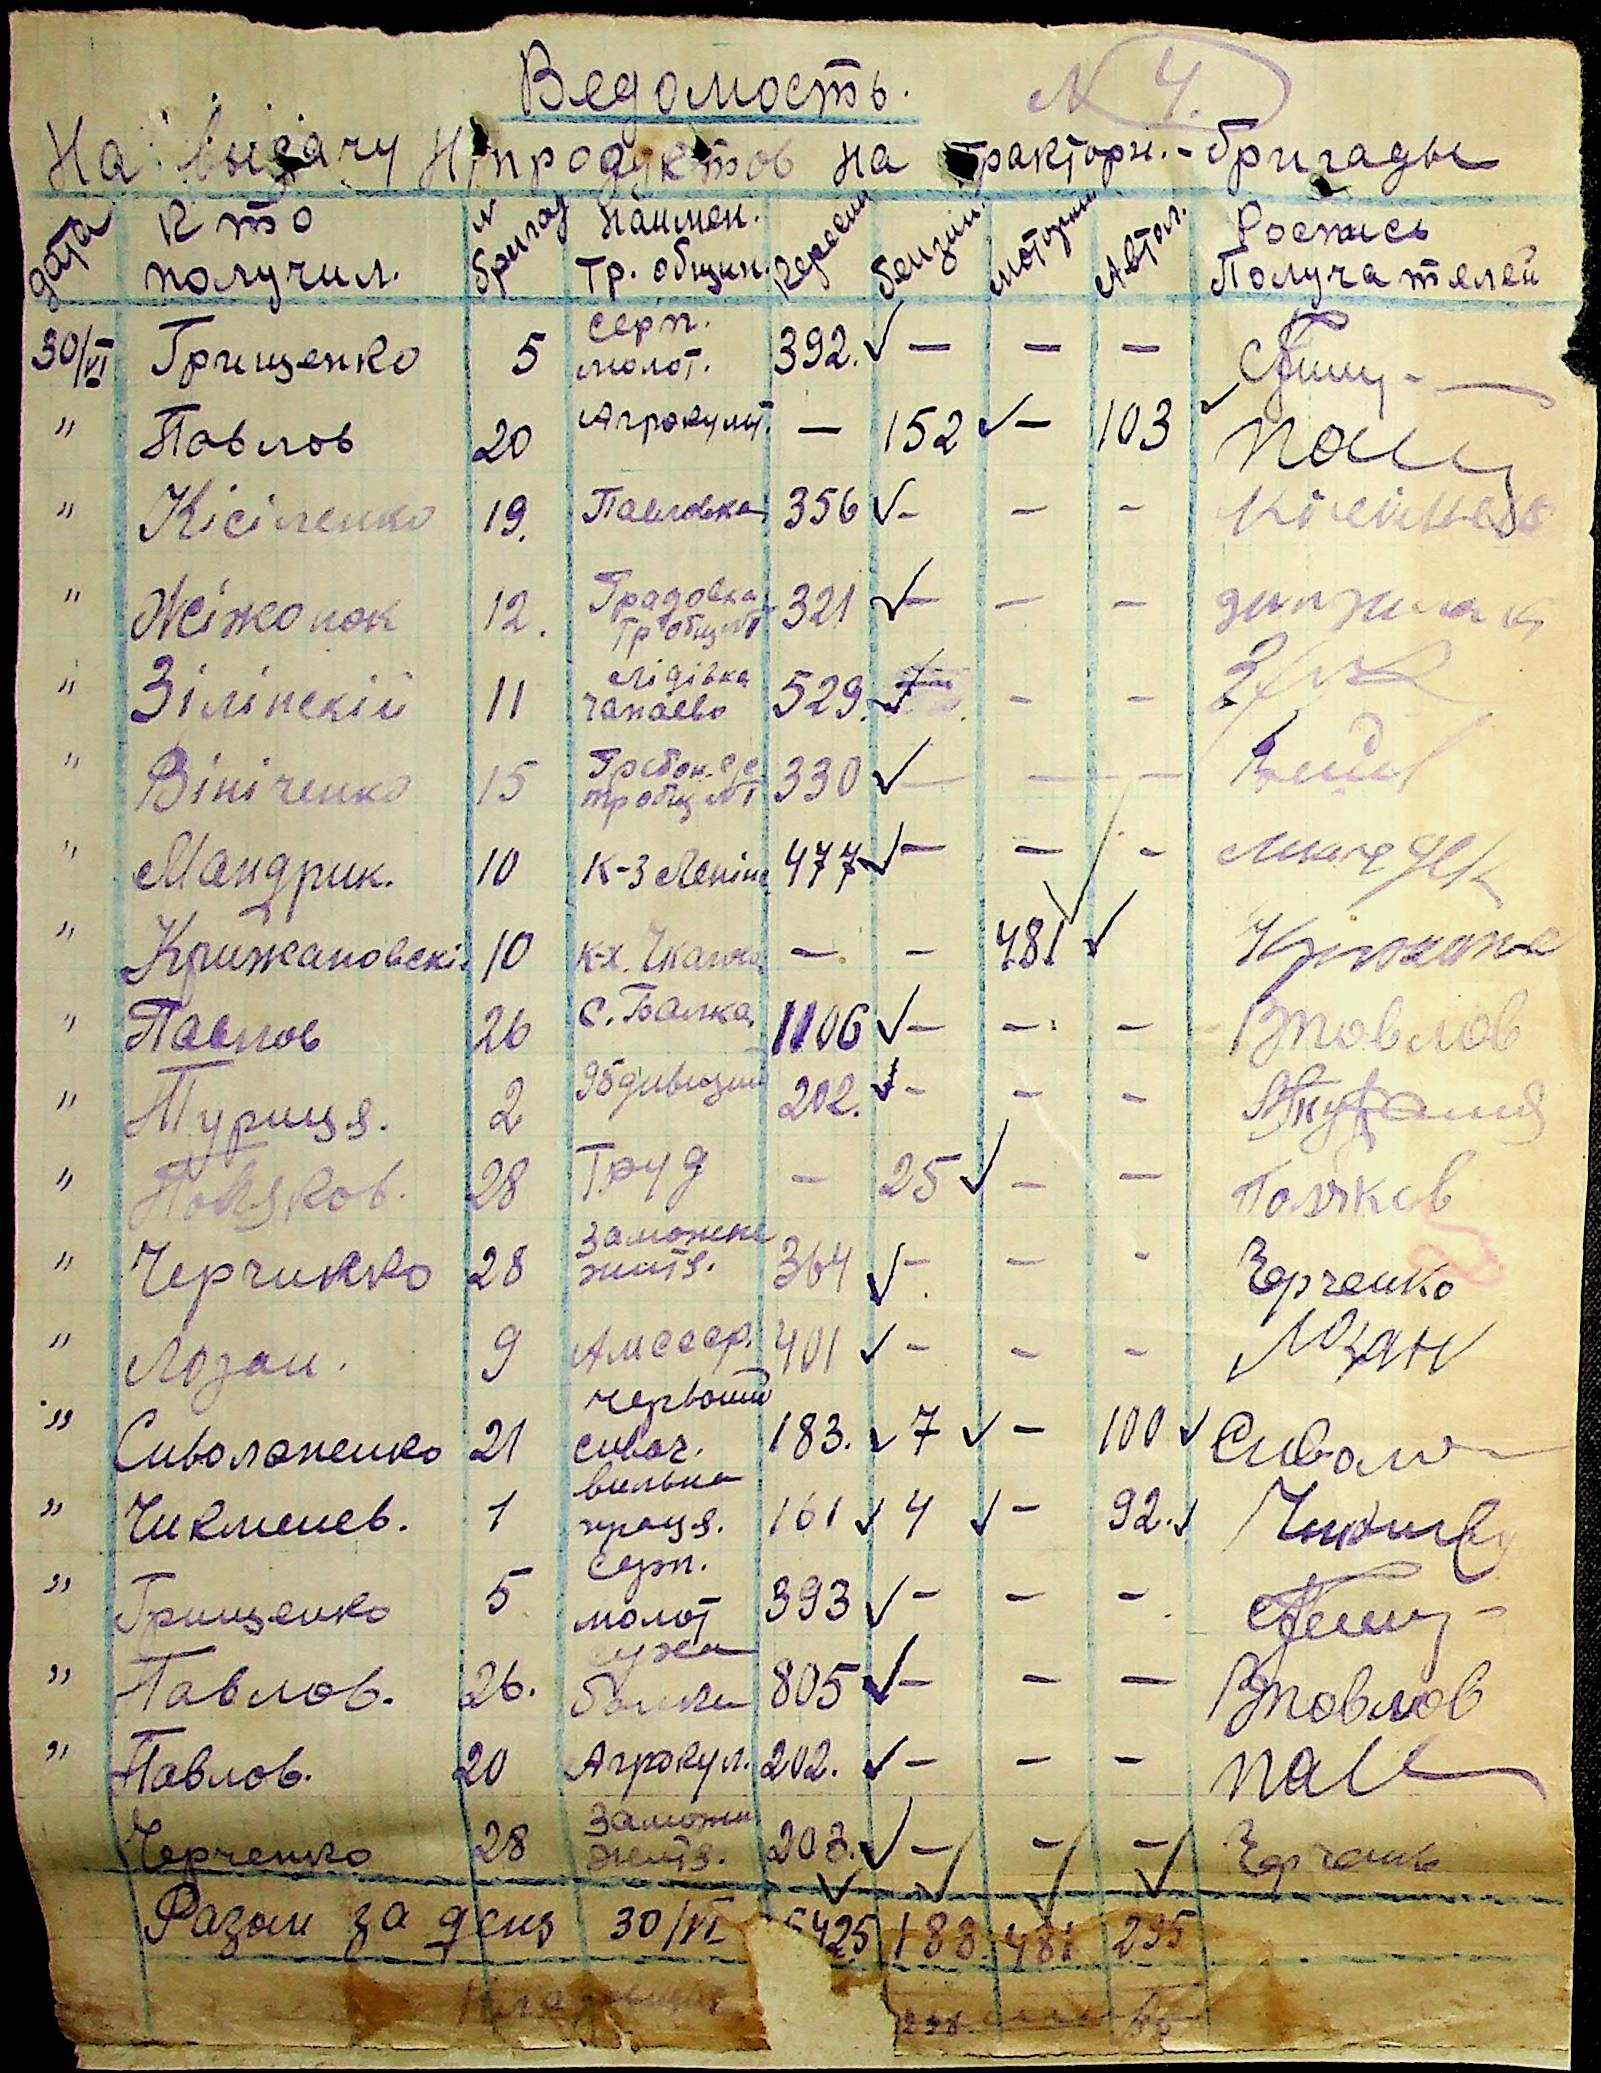 Ведомость. N 4.
На выдачу Н/продуктов на Тракторн.-бригады
дата Кто получил. N бригад Наимен. Тр. общин. Керосин Бензин Моторин Автол. Роспись Получателей
30/VI Грищенко 5 серп. молот. 392. ✓ — — —
" Павлов 20 Агрокульт. — 152 ✓ — 103 ✓
" Кісіленко 19. Павловка 356 ✓ - - -
" Жіжонок 12. Градовка Тр общ №1 321 ✓ - - -
" Зілінскій 11 Лідівка Чапаево 529. ✓ - -
" Вініченко 15 тр общ №1 330 ✓ — — —
" Мандрик. 10 К-з Леніна 477 ✓ — — -
" Крижановскі 10 к-х. Чкалова — - 481 ✓
" Павлов 26 С. Балка 1106 ✓ - - - Вповлов
" Туриця. 2 202. ✓ - - -
" Поляков. 28 Труд - 25 ✓ - - Поляков
" Черчикко 28 Заможне життя. 364 ✓ - - - Черченко
" Лозан. 9 Амсср. 401 ✓ - - - Лозан
" Сиволапенко 21 червоний сивач. 183. ✓ 7 ✓ - 100 ✓ Сивол
" Чикменев. 1 вильна праця. 161 ✓ 4 ✓ - 92. ✓
" Грищенко 5 серп. молот 393 ✓ - - -
" Павлов. 26. суха балка 805 ✓ - - — Вповлов
" Павлов. 20 Агрокул. 202. ✓ - - -
Черченко 28 Заможн життя. 203. ✓ — - — Черченко
Разом за день 30/VI 5425 188. 481 295